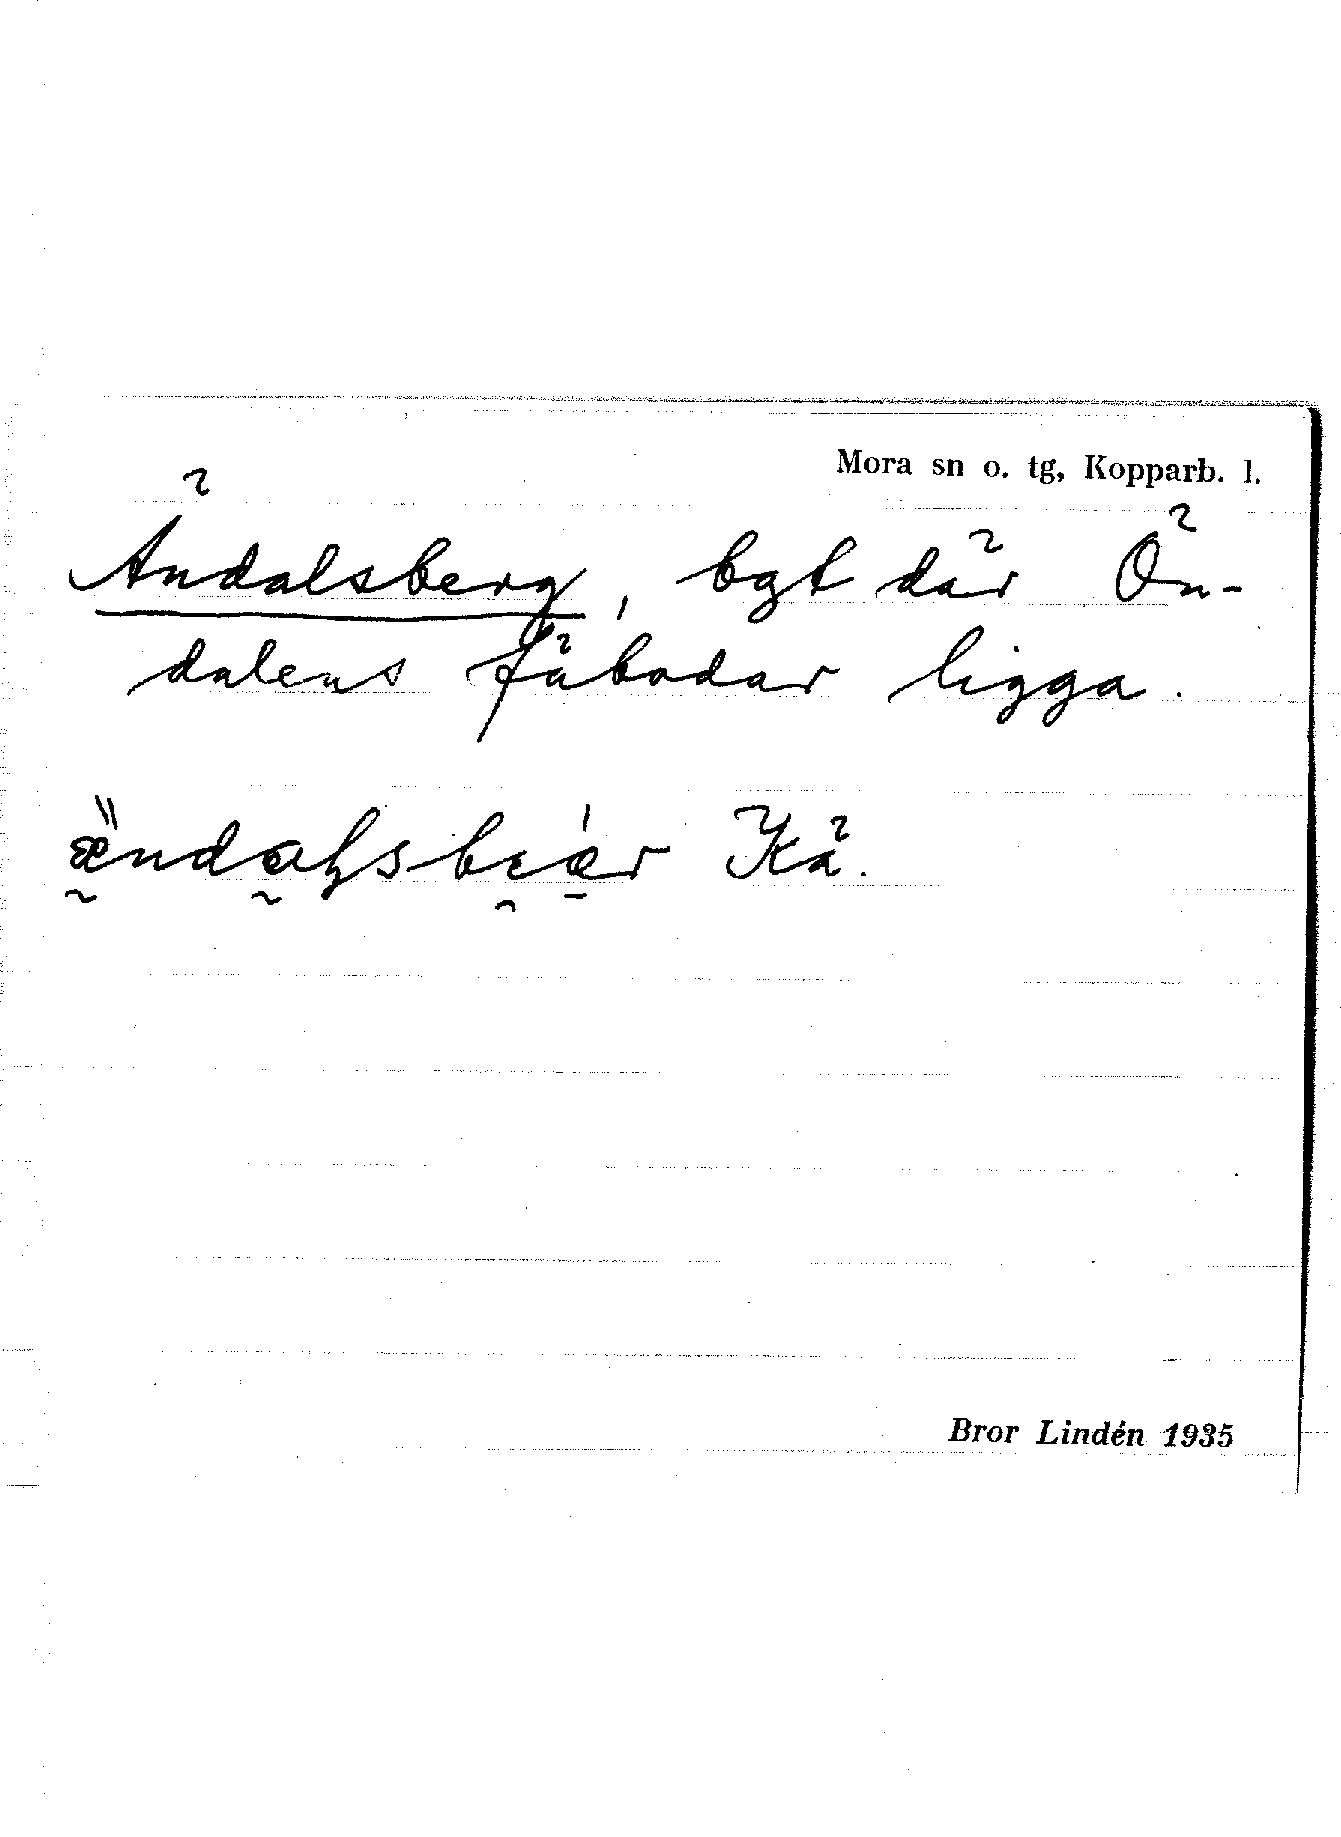 Mora sn o. tg, Kopparb. l.
Ändalsberg, bgt där Ön-
dalens fäbodar ligga.
Kä.
Bror Lindén 1935